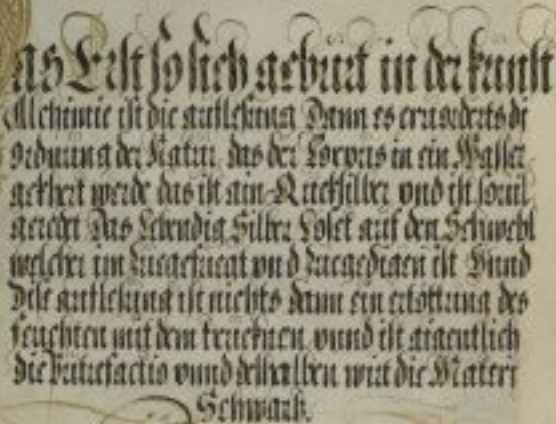 as Erst so sich gebürt in der kunst
Alchimie ist die auflesung Dann es eruorderts di
ordnung der Natur das der Corpus in ein Wasser
gekhert werde das ist ain Quecksilber vnd ist souil
geredt Das Lebendig Silber Loset auf den Schwebl
welcher im zuegefuegt vnd zuegedigen ist Vnnd
Dise auflesung ist nichts dann ein ertottung des
feuchten mit dem trucknen vnnd ist aigentlich
die Putrefactio vnnd deshalben wirt die Materi
Schwartz.